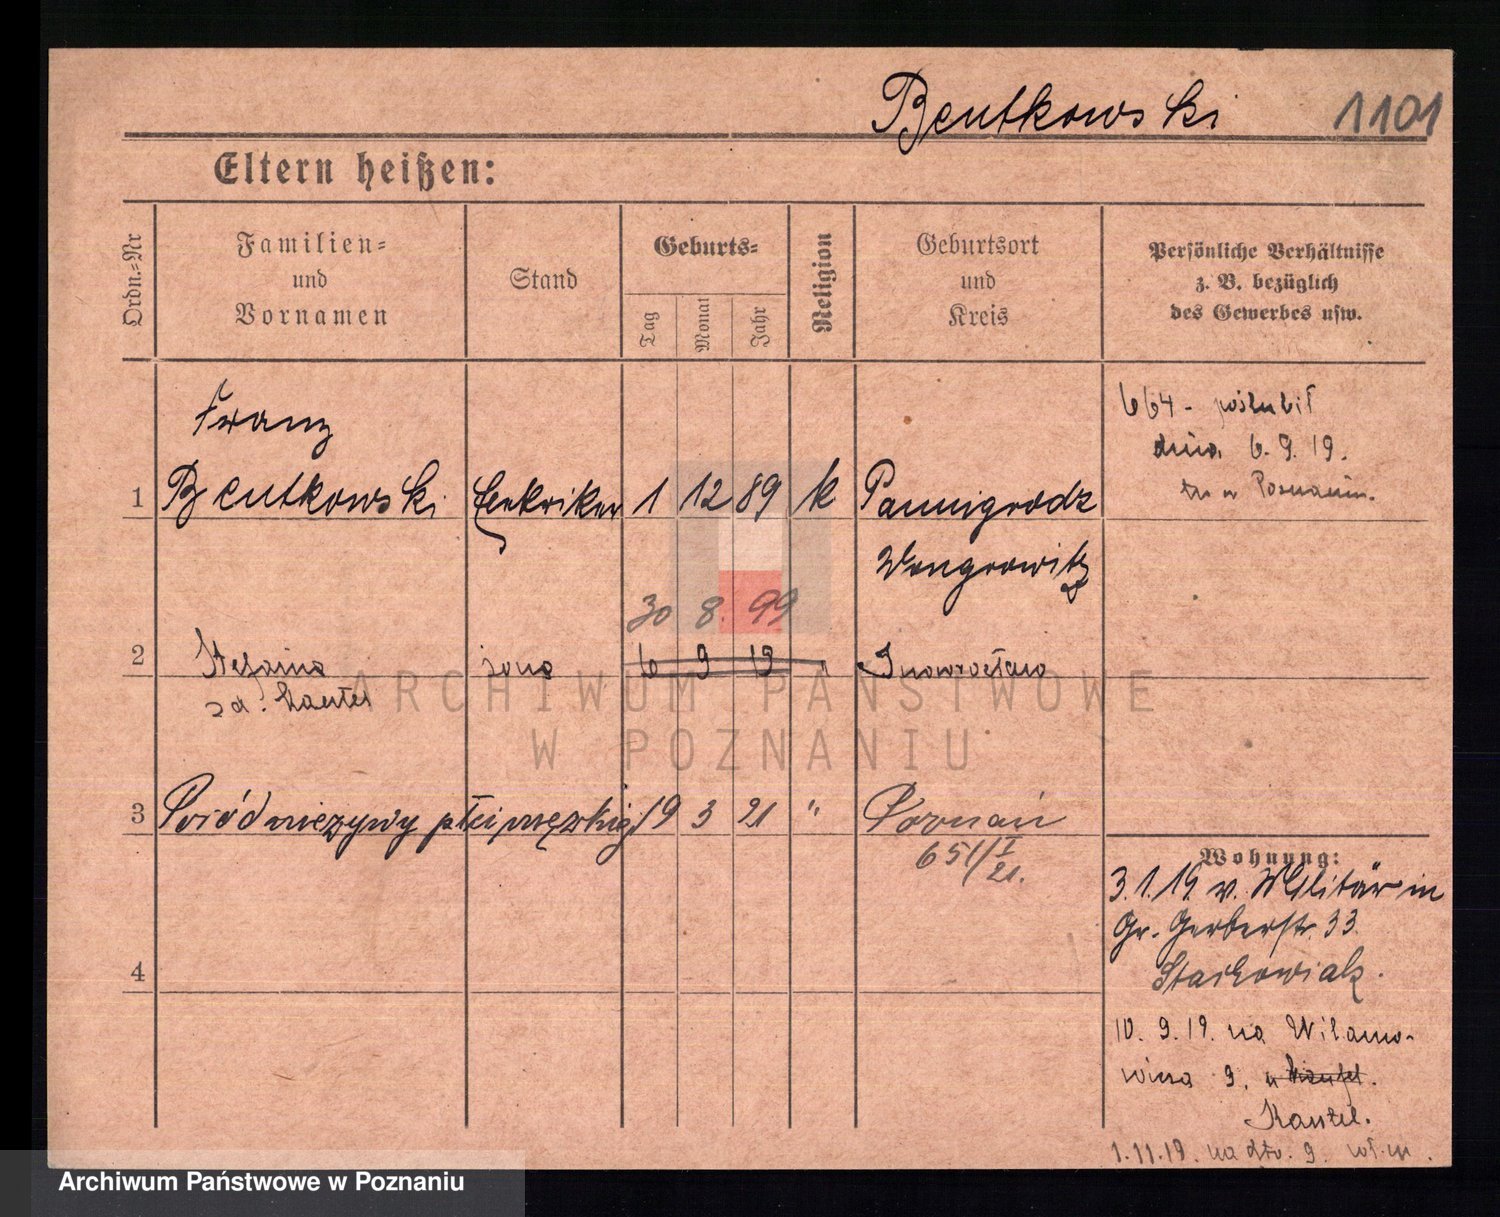 Bentkowski 1101
Eltern heißen:
Ordn.=Nr
Familien=
und
Vornamen
Stand
Geburts=
Tag
Monat
Jahr
Religion
Geburtsort
und
Kreis
Persönliche Verhältnisse
z. B. bezüglich
des Gewerbes usw.
Franz
1 Bentkowski 1 12 89 k Pannigrodz
Wongrowitz
664 - poślubił
dnia 6. 9. 19.
tu w Poznaniu.
30 8. 99
2 Stefania żona 6 9 19 " Inowrocław
zd. Kantel
3 Poród nieżywy płci męzkiej 19 3 21 " Poznań
651/I
21.
4
Wohnung:
3. 1. 19 v. Militär in
Gr. Gerberstr. 33
Stachowiak.
10. 9. 19. na Wilamo-
wica 9. u
Kantel.
1. 11. 19. na 9.
ARCHIWUM PAŃSTWOWE
W POZNANIU
Archiwum Państwowe w Poznaniu